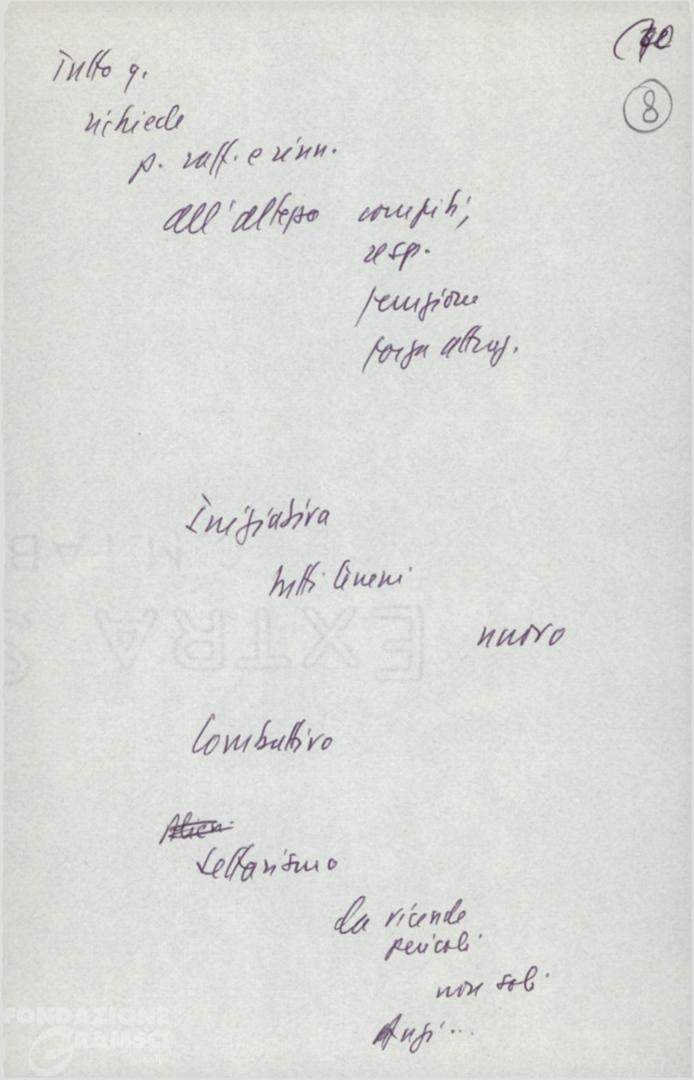 8
Tutto q.
richiede
p. raff. e rinn.
all'altezza compiti,
resp.
funzione
forza attraz.
Iniziativa
tutti terreni
nuovo
Combattivo
Settarismo
da vicende
pericoli
non soli
Anzi...
C.M.FAB
EXTRA S
FONDAZIONE
GRAMSCI